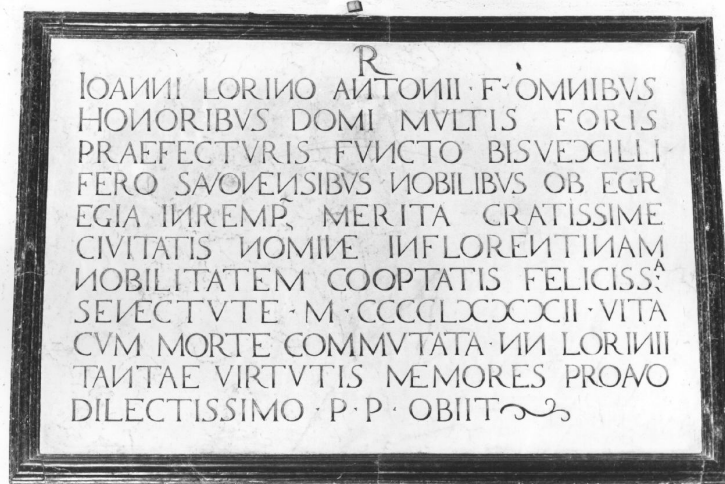 R
IOANNI LORINO ANTONII · F · OMNIBVS
HONORIBVS DOMI MVLTIS FORIS
PRAEFECTVRIS FVNCTO BISVEXILLI
FERO SAVONENSIBVS NOBILIBVS OB EGR
EGIA INREMP̃, MERITA CRATISSIME
CIVITATIS NOMINE INFLORENTINAM
NOBILITATEM COOPTATIS FELICISSᴬ;
SENECTVTE · M · CCCCLXXXXII · VITA
CVM MORTE COMMVTATA · NN LORINII
TANTAE VIRTVTIS MEMORES PROAVO
DILECTISSIMO · P · P · OBIIT